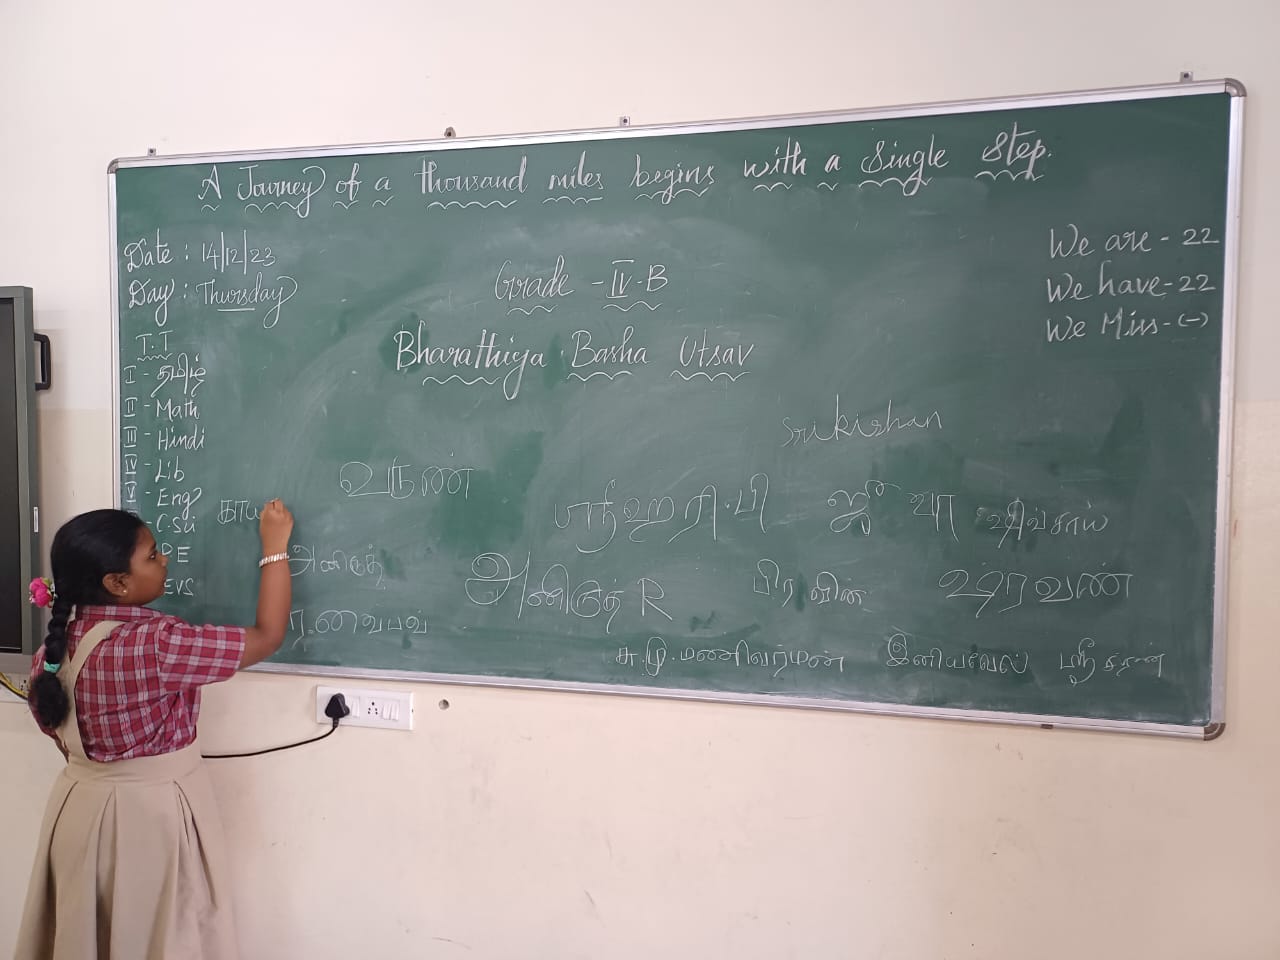 A Journey of a thousand miles begins with a Single Step.
Date : 14/12/23
Day : Thursday
Grade - IV - B
We are - 22
We have - 22
We Miss - (-)
Bharathiya Basha Utsav
T.T
I - தமிழ்
II - Math
III - Hindi
IV - Lib
V - Eng
- C.Sci
PE
EVS
Srikishan
வருண்
ஸ்ரீஹரி.பி
ஜீவா
ஷிவ்சாய்
காய
அனிருத்
அனிருத் R
பிரவின்
ஷ்ரவண்
ர.வைபவ்
சு.மு.மணிவர்மன்
இனியவேல்
ஸ்ரீசரன்